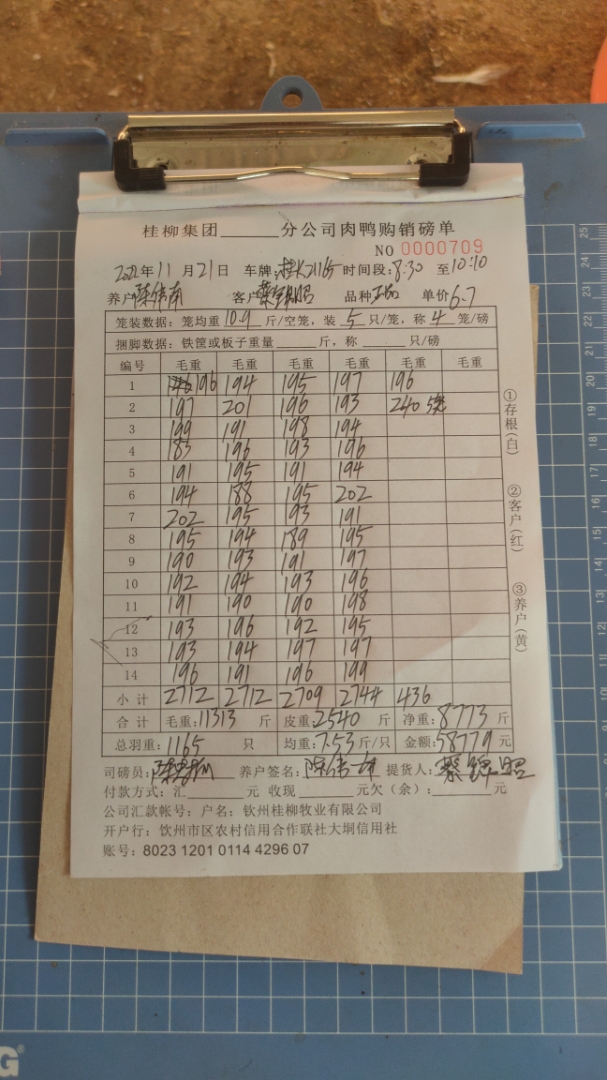 桂柳集团______分公司肉鸭购销磅单
NO 0000709
2022年11月21日 车牌: 时间段:8:30 至10:10
养户 客户 品种 单价6.7
笼装数据: 笼均重10.9斤/空笼, 装5只/笼, 称4笼/磅
捆脚数据: 铁筐或板子重量______斤, 称______只/磅
编号 毛重 毛重 毛重 毛重 毛重 毛重
1 196 194 195 197 196
2 197 201 196 193 240
3 199 191 198 194
4 83 196 193 196
5 191 195 191 194
6 194 188 195 202
7 202 195 93 191
8 195 194 189 195
9 190 193 191 197
10 192 194 193 196
11 191 190 190 198
12 193 196 192 195
13 193 194 197 197
14 196 191 196 199
小计 2712 2712 2709 2744 436
合计 毛重:11313斤 皮重:2540斤 净重:8773斤
总羽重:1165只 均重:7.53斤/只 金额:58779元
①存根(白)
②客户(红)
③养户(黄)
司磅员: 养户签名: 提货人:
付款方式: 汇______元 收现______元欠(余):______元
公司汇款帐号: 户名: 钦州桂柳牧业有限公司
开户行: 钦州市区农村信用合作联社大垌信用社
账号: 8023 1201 0114 4296 07
25
24
23
22
21
20
19
18
17
16
15
14
G